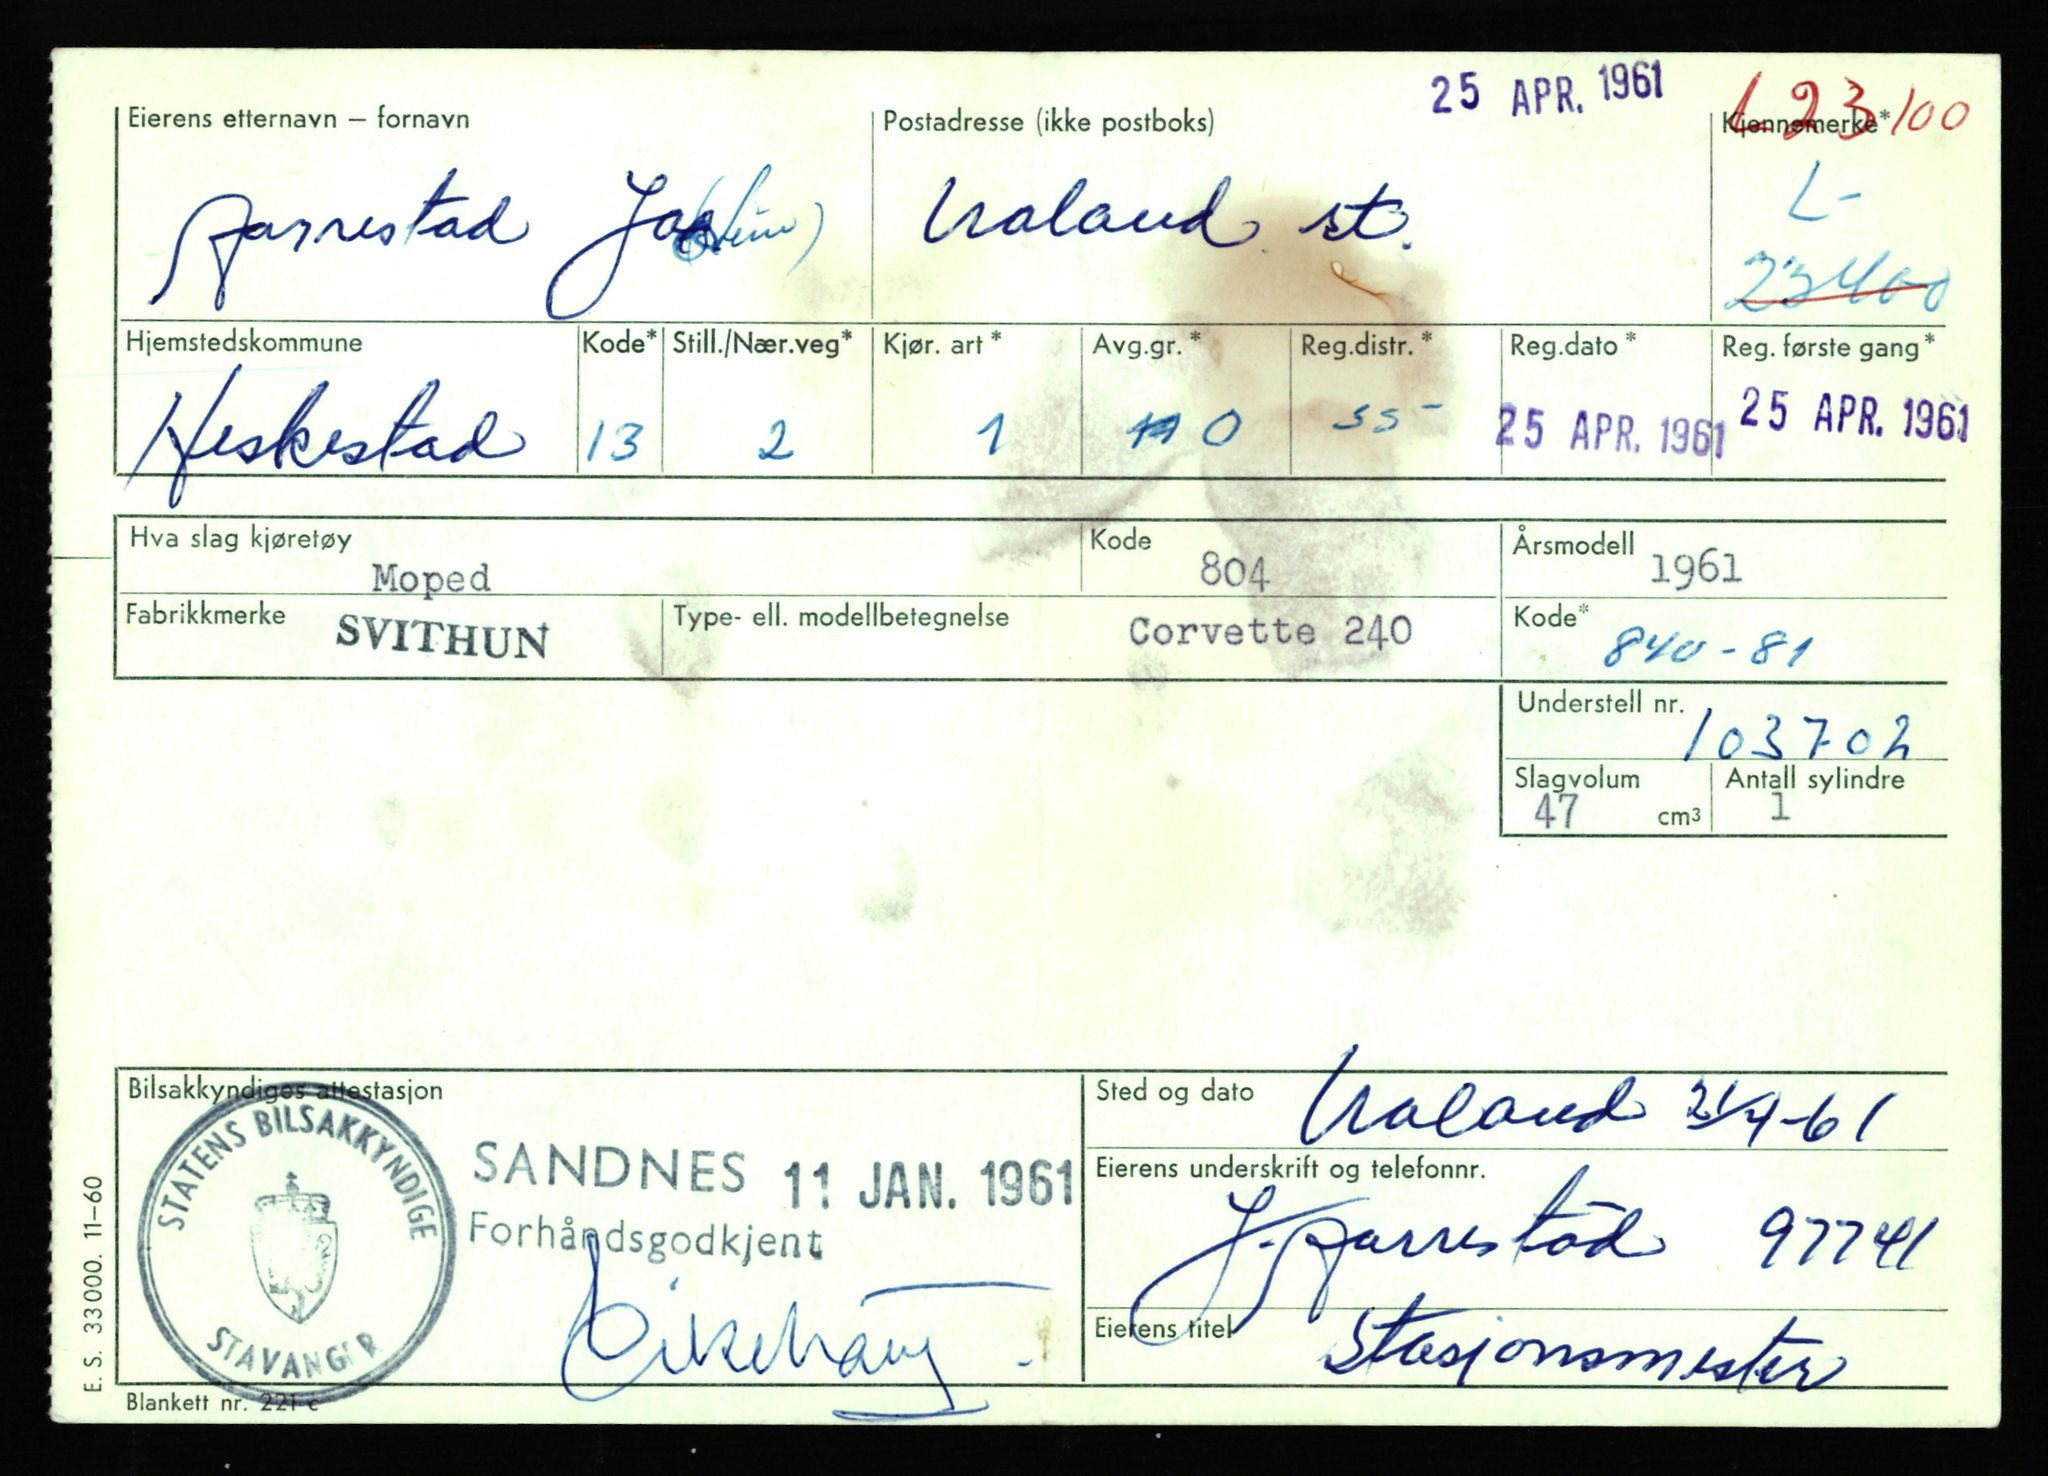 25 APR. 1961
L 23100
Eierens etternavn – fornavn
Postadresse (ikke postboks)
Kjennemerke*
Aarrestad
Ualand st.
L-
23400
Hjemstedskommune
Kode*
Still./Nær.veg*
Kjør. art*
Avg.gr.*
Reg.distr.*
Reg.dato*
Reg. første gang*
Heskestad
13
2
1
0
55-
25 APR. 1961
25 APR. 1961
Hva slag kjøretøy
Moped
Kode
804
Årsmodell
1961
Fabrikkmerke
SVITHUN
Type- ell. modellbetegnelse
Corvette 240
Kode*
840-81
Understell nr.
103702
Slagvolum
47 cm³
Antall sylindre
1
Bilsakkyndiges attestasjon
STATENS BILSAKKYNDIGE
STAVANGER
SANDNES 11 JAN. 1961
Forhåndsgodkjent
Sted og dato
Ualand 21/4-61
Eierens underskrift og telefonnr.
J. Aarrestad 97741
Eierens titel
Stasjonsmester
Blankett nr. 221 c
E. S. 33000. 11–60